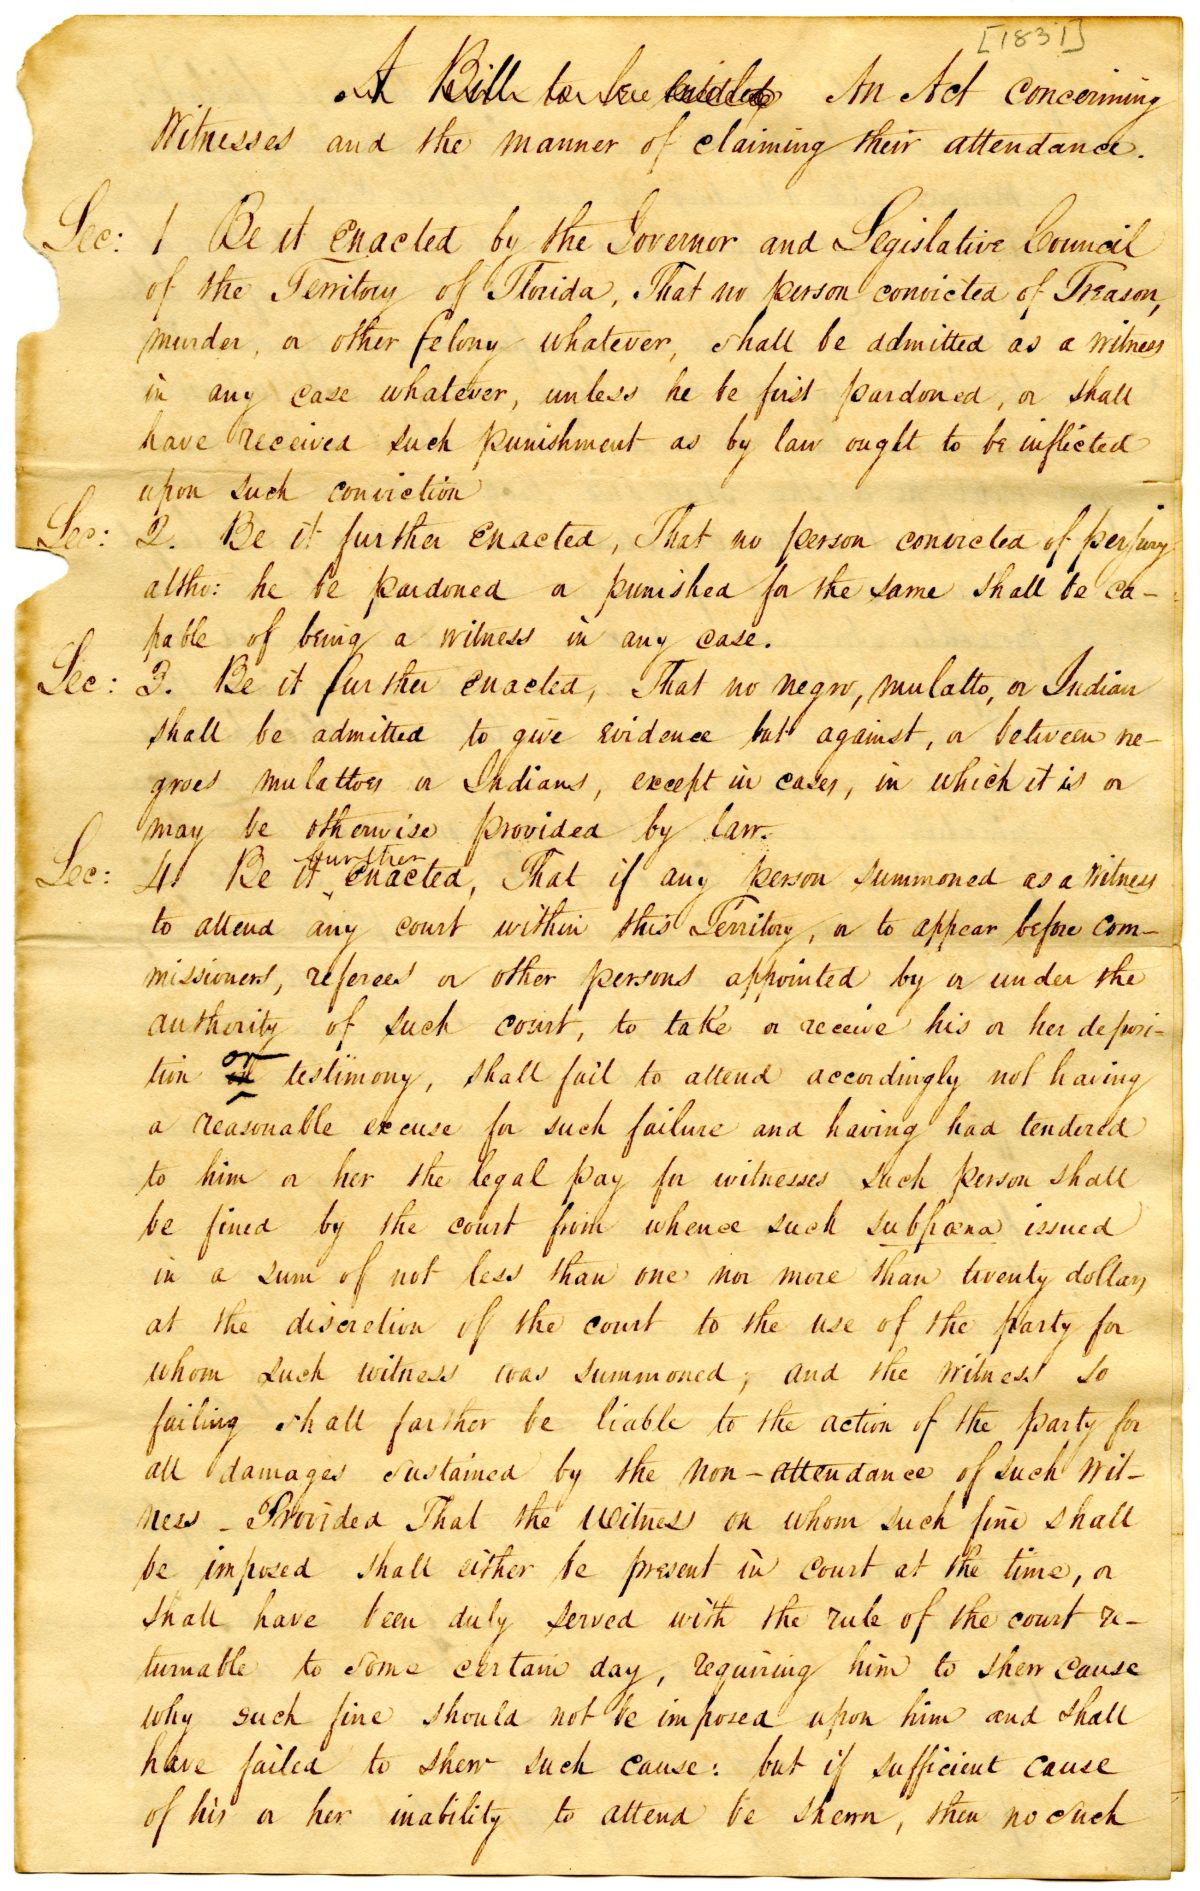 [1831]
A Bill to be entitled An Act concerning
Witnesses and the manner of claiming their attendance.
Sec: 1 Be it enacted by the Governor and Legislative Council
of the Territory of Florida, That no person convicted of Treason,
murder, or other felony whatever, shall be admitted as a witness
in any case whatever, unless he be first pardoned, or shall
have received such punishment as by law ought to be inflicted
upon such conviction
Sec: 2. Be it further enacted, That no person convicted of perjury
altho: he be pardoned or punished for the same shall be ca-
pable of being a witness in any case.
Sec: 3. Be it further enacted, That no negro, mulatto, or Indian
shall be admitted to give evidence but against, or between ne-
groes mulattoes or Indians, except in cases, in which it is or
may be otherwise provided by law.
Sec: 4. Be it further enacted, That if any person summoned as a witness
to attend any court within this Territory, or to appear before com-
missioners, referees or other persons appointed by or under the
authority of such court, to take or receive his or her deposi-
tion or testimony, shall fail to attend accordingly not having
a reasonable excuse for such failure and having had tendered
to him or her the legal pay for witnesses such person shall
be fined by the court from whence such subpœna issued
in a sum of not less than one nor more than twenty dollars
at the discretion of the court to the use of the party for
whom such witness was summoned; and the witness so
failing shall farther be liable to the action of the party for
all damages sustained by the non-attendance of such wit-
ness - Provided That the witness on whom such fine shall
be imposed shall either be present in court at the time, or
shall have been duly served with the rule of the court re-
turnable to some certain day, requiring him to shew cause
why such fine should not be imposed upon him and shall
have failed to shew such cause: but if sufficient cause
of his or her inability to attend be shewn, then no such